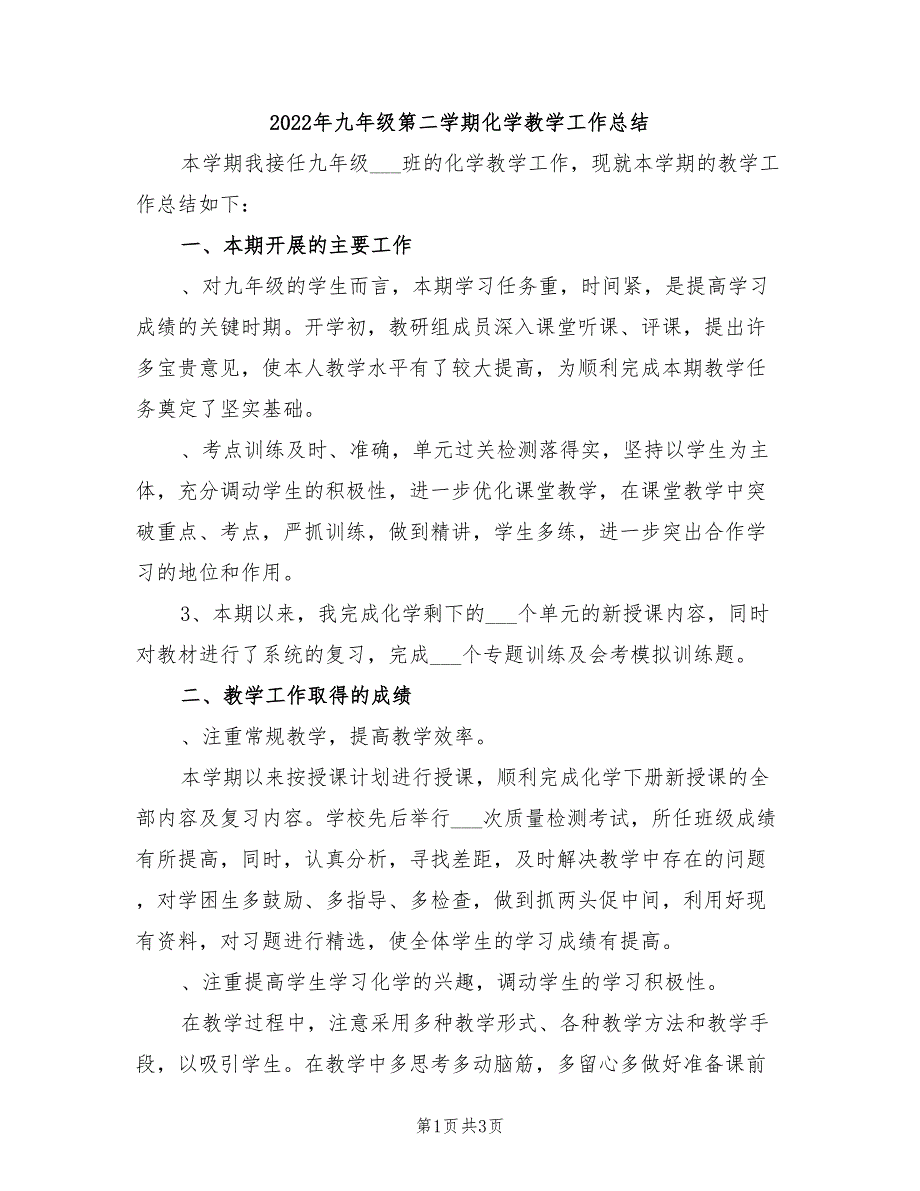 2022年九年级第二学期化学教学工作总结
本学期我接任九年级___班的化学教学工作，现就本学期的教学工
作总结如下：
一、本期开展的主要工作
、对九年级的学生而言，本期学习任务重，时间紧，是提高学习
成绩的关键时期。开学初，教研组成员深入课堂听课、评课，提出许
多宝贵意见，使本人教学水平有了较大提高，为顺利完成本期教学任
务奠定了坚实基础。
、考点训练及时、准确，单元过关检测落得实，坚持以学生为主
体，充分调动学生的积极性，进一步优化课堂教学，在课堂教学中突
破重点、考点，严抓训练，做到精讲，学生多练，进一步突出合作学
习的地位和作用。
3、本期以来，我完成化学剩下的___个单元的新授课内容，同时
对教材进行了系统的复习，完成___个专题训练及会考模拟训练题。
二、教学工作取得的成绩
、注重常规教学，提高教学效率。
本学期以来按授课计划进行授课，顺利完成化学下册新授课的全
部内容及复习内容。学校先后举行___次质量检测考试，所任班级成绩
有所提高，同时，认真分析，寻找差距，及时解决教学中存在的问题
，对学困生多鼓励、多指导、多检查，做到抓两头促中间，利用好现
有资料，对习题进行精选，使全体学生的学习成绩有提高。
、注重提高学生学习化学的兴趣，调动学生的学习积极性。
在教学过程中，注意采用多种教学形式、各种教学方法和教学手
段，以吸引学生。在教学中多思考多动脑筋，多留心多做好准备课前
第1页共3页